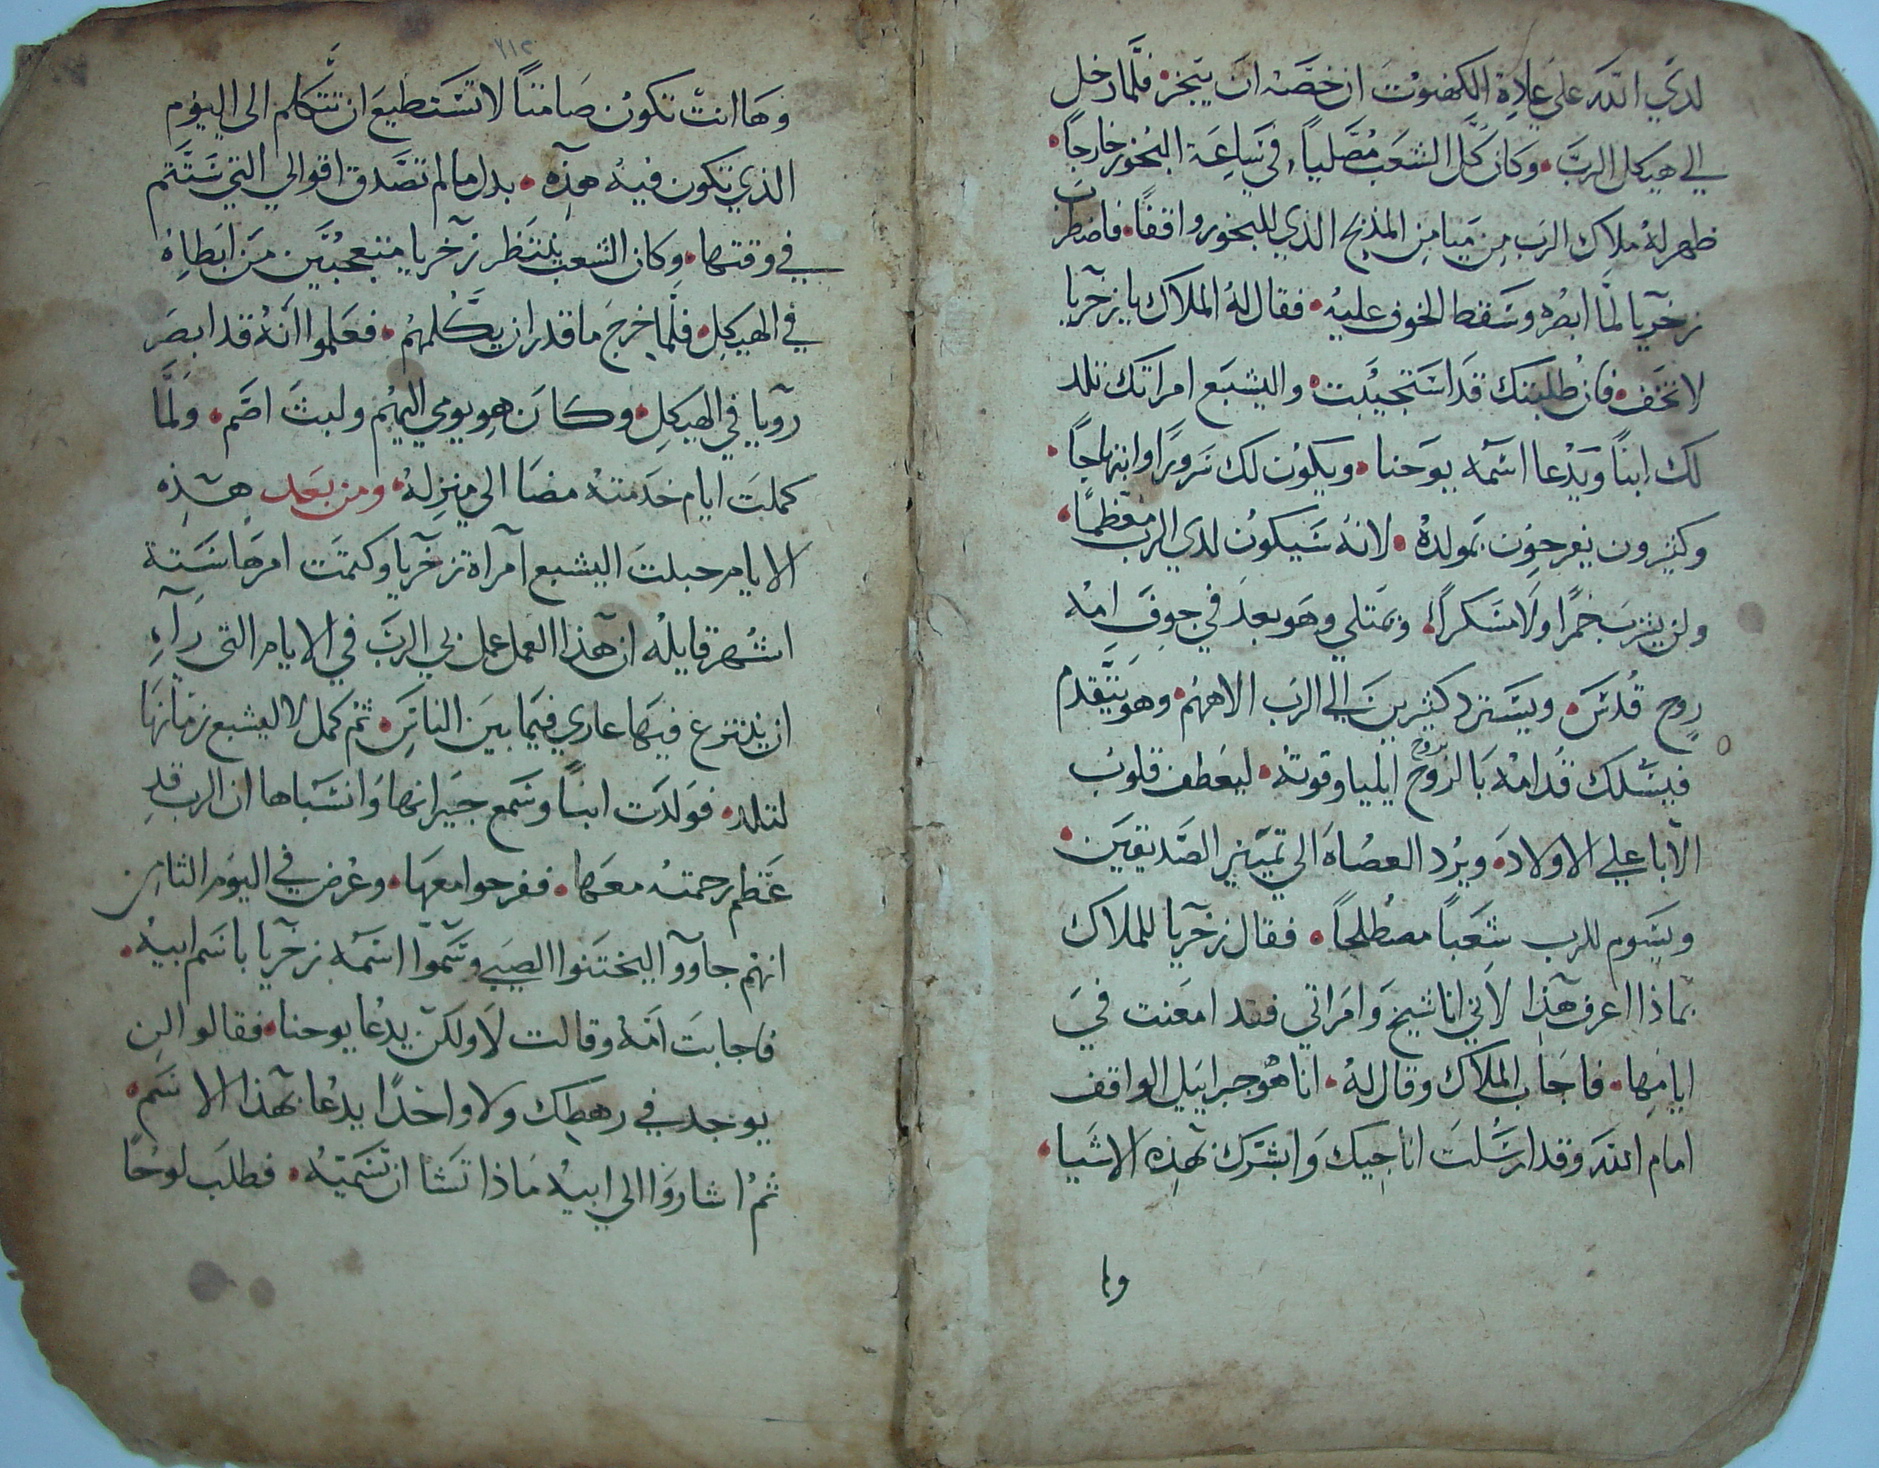 لدي الله علي علاة الكهنوت ان خصته ان يبخر • فلما دخل
الي هيكل الرب • وكان كل الشعب مصلياً في ساعة البخور خارجاً •
ظهر له ملاك الرب من ميامن المذبح الذي للبخور واقفاً • فاضطرب
زخريا لما ابصره وسقط الخوف عليه • فقال له الملاك يا زخريا
لا تخف • فان طلبتك قد استجيبت • واليشبع امراتك تلد
لك ابناً ويدعا اسمه يوحنا • ويكون لك سروراً وابتهاجاً •
وكثيرون يفرحون بمولده • لانه سيكون لدي الرب معظماً •
ولن يشرب خمراً ولا مسكراً • ويمتلي وهو بعد في جوف امه
روح قدس • ويسترد كثيرين الي الرب الاههم • وهو يتقدم
فيسلك قدامه بالروح بروح ايليا وقوته • ليعطف قلوب
الآبا علي الاولاد • ويرد العصاة الي تمييز الصديقين •
ويسوم للرب شعباً مصطلحاً • فقال زخريا للملاك
بماذا اعرف هذا لاني انا شيخ وامراتي فقد امعنت في
ايامها • فاجاب الملاك وقال له • انا هو جبراييل الواقف
امام الله وقد ارسلت اناجيك وابشرك بهذه الاشيا •
وها
٢١٢
وها انت تكون صامتاً لا تستطيع ان تتكلم الي اليوم
الذي تكون فيه هذه • بدل ما لم تصدق اقوالي التي ستتم
في وقتها • وكان الشعب ينتظر زخريا متعجبين من ابطاه
في الهيكل • فلما خرج ما قدر ان يكلمهم • فعلموا انه قد ابصر
رويا في الهيكل • وكان هو يومي اليهم ولبث اصم • ولما
كملت ايام خدمته مضا الي منزله • ومن بعد هذه
الايام حبلت اليشبع امراة زخريا وكتمت امرها ستة
اشهر قايله ان هذا العمل عمل بي الرب في الايام التي رآء
ان ينتزع فيها عاري فيما بين الناس • ثم كمل لاليشبع زمانها
لتلد • فولدت ابناً وسمع جيرانها وانسباها ان الرب قد
عظم رحمته معها • ففرحوا معها • وعرض في اليوم الثامن
انهم جاووا ليختنوا الصبي وسموا اسمه زخريا باسم ابيه •
فاجابت امه وقالت لا ولكن يدعا يوحنا • فقالوا لن
يوجد في رهطك ولا واحداً يدعا بهذا الاسم •
ثم اشاروا الي ابيه ماذا تشا ان تسميه • فطلب لوحاً